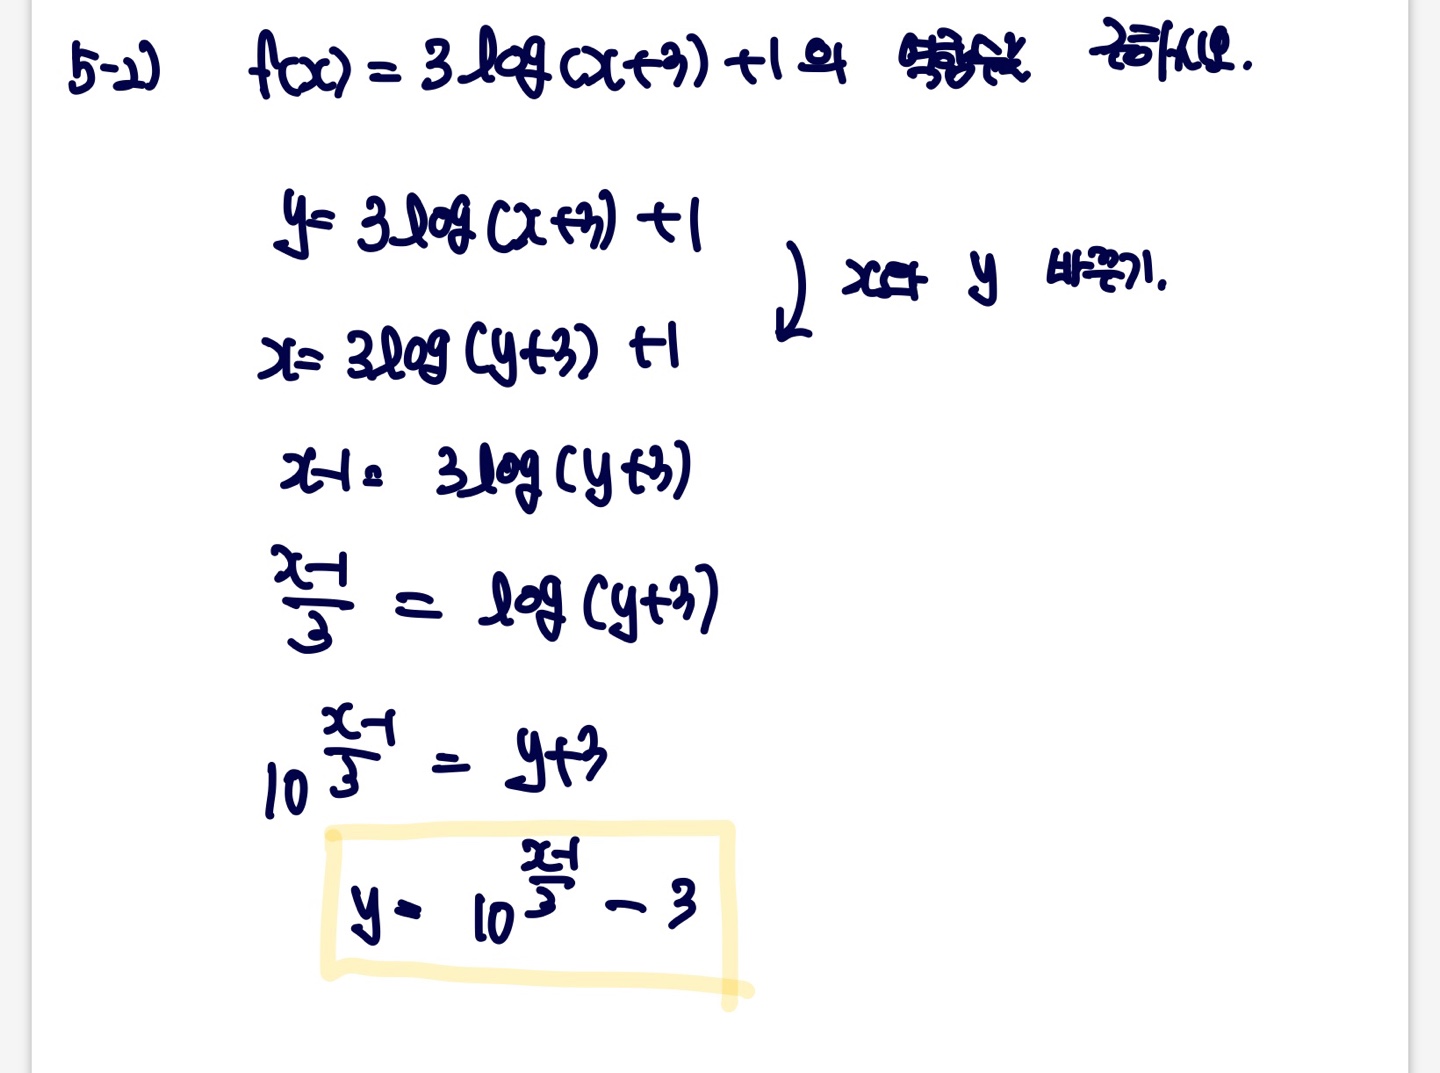 5-2) f(x) = 3 log (x+3) +1 의 역함수를 구하시오.
y= 3 log (x+3) +1
x와 y 바꾸기.
x= 3 log (y+3) +1
x-1 = 3 log (y+3)
\frac{x-1}{3} = log (y+3)
10^{\frac{x-1}{3}} = y+3
y= 10^{\frac{x-1}{3}} - 3